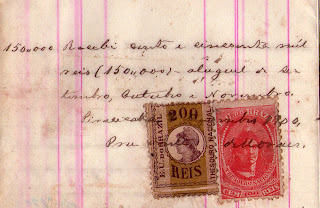 150,000 Recebi cento e cincoenta mil
reis (150,000) - aluguel de se
tembro, Outubro e Novembro.
Piracicaba 1900,
Pru Moraes.
200
E.U. DO BRAZIL
THESOURO NACIONAL
REIS